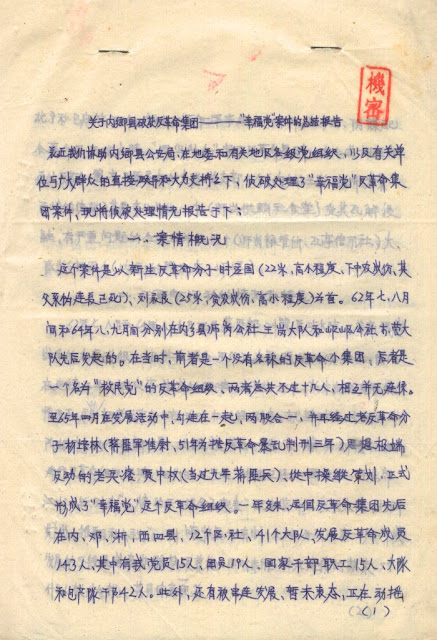 機密
关于内鄉县破获反革命集团——"幸福党"案件的总结报告
最近我们协助内鄉县公安局,在地委和有关地区各级党组织,以及有关单
位与广大群众的直接领导和大力支持之下,侦破处理了"幸福党"反革命集
团案件,现将侦破处理情况报告于下:
一、案情概况
这个案件是以新生反革命分子时豆国(22岁,高小程度,下中农成份,其
父系伪连长已死)、刘 (25岁,贫农成份,高小程度)为首。62年七、八月
间和64年八、九月间分别在内乡县师岗公社王营大队和岞岖公社东营大
队先后发起的。在当时,前者是一个没有名称的反革命小集团,后者是
一个名为"救民党"的反革命组织、两者总共不过十九人,相互并无连系。
至65年四月在发展活动中,勾连在一起,两股合一,并经过老反革命分
子杨 林(蒋匪军准尉,51年为搞反革命暴乱判刑三年)、思想极端
反动的老兵痞贾中权(当过九年蒋匪兵)、从中操纵策划,正式
形成了"幸福党"这个反革命组织。一年多来,这个反革命集团先后
在内、邓、淅、西四县,12个区、社,41个大队、发展反革命成员
143人,其中有我党员15人、团员19人、国家干部职工15人、大队
和包产队干部42人。此外,还有被串连发展、暂未表态,正在动摇
(1)